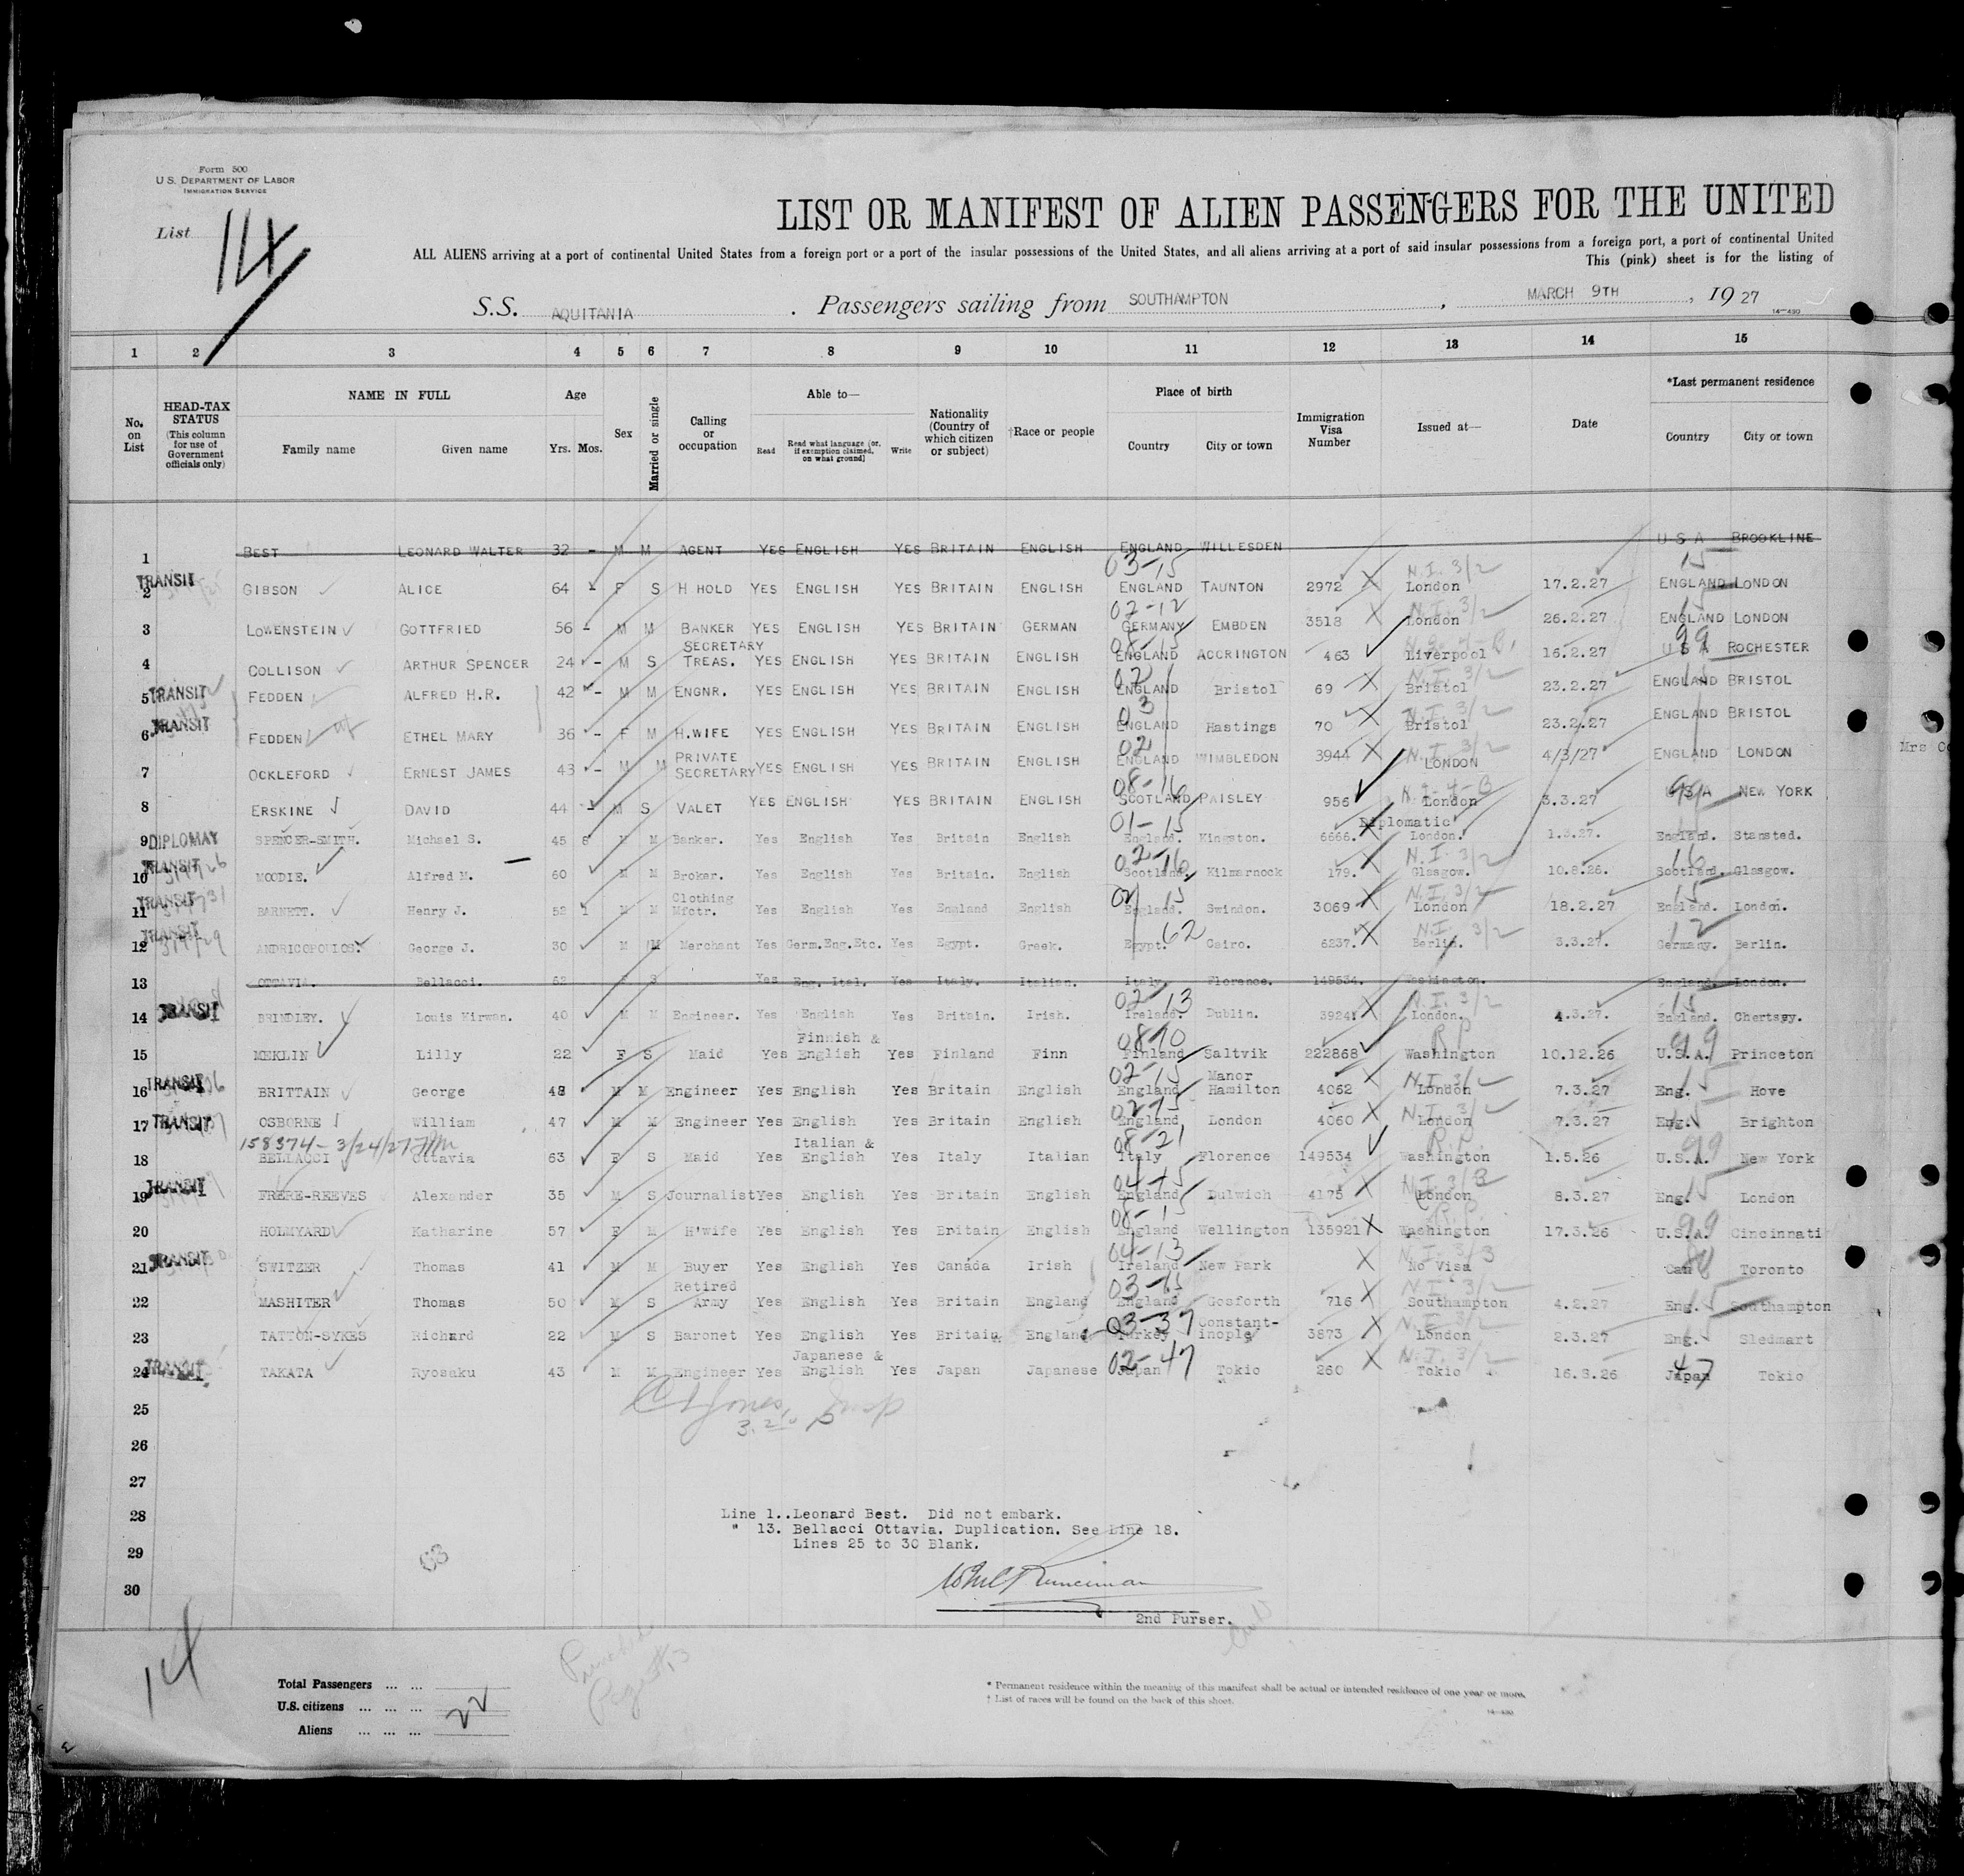 Form 500
U.S. DEPARTMENT OF LABOR
IMMIGRATION SERVICE
List 14
LIST OR MANIFEST OF ALIEN PASSENGERS FOR THE UNITED
ALL ALIENS arriving at a port of continental United States from a foreign port or a port of the insular possessions of the United States, and all aliens arriving at a port of said insular possessions from a foreign port, a port of continental United
This (pink) sheet is for the listing of
S.S. AQUITANIA . Passengers sailing from SOUTHAMPTON , MARCH 9TH , 19 27
14—430
1 2 3 4 5 6 7 8 9 10 11 12 13 14 15
No. on List
HEAD-TAX STATUS (This column for use of Government officials only)
NAME IN FULL
Family name Given name
Age
Yrs. Mos.
Sex
Married or single
Calling or occupation
Able to—
Read Read what language [or, if exemption claimed, on what ground] Write
Nationality (Country of which citizen or subject)
†Race or people
Place of birth
Country City or town
Immigration Visa Number
Issued at—
Date
*Last permanent residence
Country City or town
1 BEST LEONARD WALTER 32 - M M AGENT YES ENGLISH YES BRITAIN ENGLISH ENGLAND WILLESDEN U S A BROOKLINE
03-15 N.I. 3/2 15
2 TRANSIT GIBSON ALICE 64 - F S H HOLD YES ENGLISH YES BRITAIN ENGLISH ENGLAND TAUNTON 2972 X London 17.2.27 ENGLAND LONDON
02-12 N.I. 3/2 15
3 LOWENSTEIN GOTTFRIED 56 - M M BANKER YES ENGLISH YES BRITAIN GERMAN GERMANY EMBDEN 3518 X London 26.2.27 ENGLAND LONDON
08-15 99
4 COLLISON ARTHUR SPENCER 24 - M S SECRETARY TREAS. YES ENGLISH YES BRITAIN ENGLISH ENGLAND ACCRINGTON 463 Liverpool 16.2.27 U S A ROCHESTER
02 N.I. 3/2
5 TRANSIT FEDDEN ALFRED H.R. 42 - M M ENGNR. YES ENGLISH YES BRITAIN ENGLISH ENGLAND Bristol 69 X Bristol 23.2.27 ENGLAND BRISTOL
03 N.I. 3/2
6 TRANSIT FEDDEN ETHEL MARY 36 - F M H.WIFE YES ENGLISH YES BRITAIN ENGLISH ENGLAND Hastings 70 X Bristol 23.2.27 ENGLAND BRISTOL
02 N.I. 3/2
7 OCKLEFORD ERNEST JAMES 43 - M M PRIVATE SECRETARY YES ENGLISH YES BRITAIN ENGLISH ENGLAND WIMBLEDON 3944 X LONDON 4/3/27 ENGLAND LONDON
08-16 N.I-4-B 99
8 ERSKINE DAVID 44 - M S VALET YES ENGLISH YES BRITAIN ENGLISH SCOTLAND PAISLEY 956 London 3.3.27 U S A NEW YORK
01-15 Diplomatic
9 DIPLOMAY SPENCER-SMITH. Michael S. 45 8 M M Banker. Yes English Yes Britain English England. Kingston. 6666. X London. 1.3.27. England. Stansted.
02-16 N.I. 3/2 16
10 TRANSIT MOODIE. Alfred M. 60 M M Broker. Yes English Yes Britain. English Scotland. Kilmarnock 179. X Glasgow. 10.8.26. Scotland. Glasgow.
02 15 N.I. 3/2 15
11 TRANSIT BARNETT. Henry J. 52 1 M M Clothing Mfctr. Yes English Yes England English England. Swindon. 3069 X London 18.2.27 England. London.
62 N.I. 3/2 12
12 TRANSIT ANDRICOPOULOS. George J. 30 M M Merchant Yes Germ.Eng.Etc. Yes Egypt. Greek. Egypt. Cairo. 6237. X Berlin. 3.3.27. Germany. Berlin.
13 OTTAVIA. Bellacci. 62 F S Yes Eng. Ital. Yes Italy. Italian. Italy. Florence. 149534. Washington. England. London.
02 13 N.I. 3/2 15
14 TRANSIT BRINDLEY. Louis Kirwan. 40 M M Engineer. Yes English Yes Britain. Irish. Ireland. Dublin. 3924 X London. 4.3.27. England. Chertsey.
08-10 R P 99
15 MEKLIN Lilly 22 F S Maid Yes Finnish & English Yes Finland Finn Finland Saltvik 222868 Washington 10.12.26 U.S.A. Princeton
02-15 N.I. 3/2 15
16 TRANSIT BRITTAIN George 48 M M Engineer Yes English Yes Britain English England Manor Hamilton 4062 X London 7.3.27 Eng. Hove
02-15 N.I. 3/2 15
17 TRANSIT OSBORNE William 47 M M Engineer Yes English Yes Britain English England London 4060 X London 7.3.27 Eng. Brighton
158374-3/24/27 08-21 R.P. 99
18 BELLACCI Ottavia 63 F S Maid Yes Italian & English Yes Italy Italian Italy Florence 149534 Washington 1.5.26 U.S.A. New York
04-15 N.I. 3/3 15
19 TRANSIT FRERE-REEVES Alexander 35 M S Journalist Yes English Yes Britain English England Dulwich 4175 X London 8.3.27 Eng. London
08-15 R.P. 99
20 HOLMYARD Katharine 57 F M H'wife Yes English Yes Britain English England Wellington 135921 X Washington 17.3.26 U.S.A. Cincinnati
04-13 N.I. 3/3
21 TRANSIT SWITZER Thomas 41 M M Buyer Yes English Yes Canada Irish Ireland New Park X No Visa Can Toronto
03-15 N.I. 3/2 15
22 MASHITER Thomas 50 M S Retired Army Yes English Yes Britain England England Gosforth 716 X Southampton 4.2.27 Eng. Southampton
03-37 N.I. 3/2 15
23 TATTON-SYKES Richard 22 M S Baronet Yes English Yes Britain England Turkey Constant-inople 3873 X London 2.3.27 Eng. Sledmart
02-47 N.I. 3/2 47
24 TRANSIT TAKATA Ryosaku 43 M M Engineer Yes Japanese & English Yes Japan Japanese Japan Tokio 260 X Tokio 16.8.26 Japan Tokio
25
26
27
28
29
30
Line 1..Leonard Best. Did not embark.
" 13. Bellacci Ottavia. Duplication. See Line 18.
Lines 25 to 30 Blank.
63
2nd Purser.
14
Total Passengers ... ...
U.S. citizens ... ... ...
Aliens ... ... ...
22
* Permanent residence within the meaning of this manifest shall be actual or intended residence of one year or more.
† List of races will be found on the back of this sheet.
14—430
Mrs